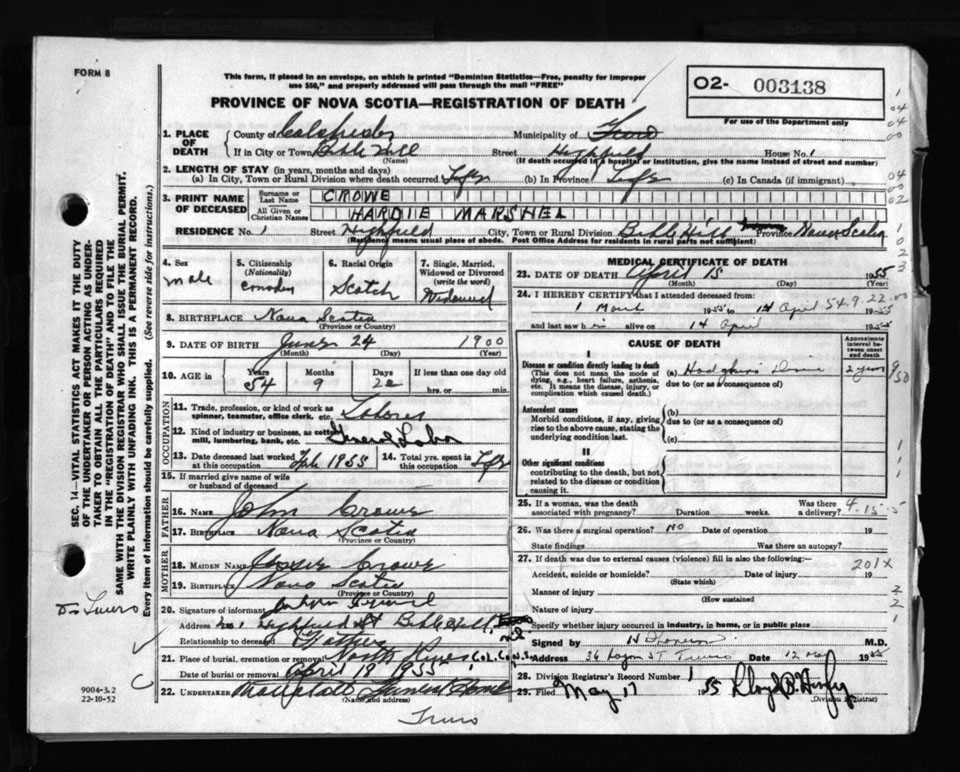 FORM 8
This form, if placed in an envelope, on which is printed "Dominion Statistics—Free, penalty for improper
use $50," and properly addressed will pass through the mail "FREE"
02- 003138
For use of the Department only
PROVINCE OF NOVA SCOTIA—REGISTRATION OF DEATH
1. PLACE OF DEATH
County of Colchester Municipality of Truro
If in City or Town Bible Hill Street Highfield House No. 1
(Name) (If death occurred in a hospital or institution, give the name instead of street and number)
2. LENGTH OF STAY (in years, months and days)
(a) In City, Town or Rural Division where death occurred (b) In Province (c) In Canada (if immigrant)
3. PRINT NAME OF DECEASED
Surname or Last Name CROWE
All Given or Christian Names HARDIE MARSHEL
RESIDENCE No. 1 Street Highfield City, Town or Rural Division Bible Hill Province Nova Scotia
(Residence means usual place of abode. Post Office Address for residents in rural parts not sufficient)
4. Sex male
5. Citizenship (Nationality)
6. Racial Origin Scotch
7. Single, Married, Widowed or Divorced (write the word) Widowed
8. BIRTHPLACE Nova Scotia
(Province or Country)
9. DATE OF BIRTH June 24 1900
(Month) (Day) (Year)
10. AGE in Years 54 Months 9 Days 22 If less than one day
hrs. or min.
OCCUPATION
11. Trade, profession, or kind of work as spinner, teamster, office clerk, etc. Laborer
12. Kind of industry or business, as cotton mill, lumbering, bank, etc. General Labor
13. Date deceased last worked at this occupation Feb 1955 14. Total yrs. spent in this occupation
15. If married give name of wife or husband of deceased
FATHER
16. NAME John Crowe
17. BIRTHPLACE Nova Scotia
(Province or Country)
MOTHER
18. MAIDEN NAME Crowe
19. BIRTHPLACE Nova Scotia
(Province or Country)
20. Signature of informant
Address No. 1 Highfield St Bible Hill,
Relationship to deceased Father
21. Place of burial, cremation or removal North River Col. Co. N.S.
Date of burial or removal April 18 1955
22. UNDERTAKER Funeral Home
(Name and address)
Truro
MEDICAL CERTIFICATE OF DEATH
23. DATE OF DEATH April 15 1955
(Month) (Day) (Year)
24. I HEREBY CERTIFY that I attended deceased from:
1 1955 to 14 April 1955
and last saw h alive on 14 April 1955
CAUSE OF DEATH
Approximate interval between onset and death
I
Disease or condition directly leading to death
(This does not mean the mode of dying, e.g., heart failure, asthenia, etc. It means the disease, injury, or complication which caused death.)
(a) 2 years
due to (or as a consequence of)
Antecedent causes
Morbid conditions, if any, giving rise to the above cause, stating the underlying condition last.
(b)
due to (or as a consequence of)
(c)
II
Other significant conditions
contributing to the death, but not related to the disease or condition causing it.
25. If a woman, was the death associated with pregnancy? Duration weeks. Was there a delivery?
26. Was there a surgical operation? No Date of operation 19
State findings Was there an autopsy?
27. If death was due to external causes (violence) fill in also the following:—
Accident, suicide or homicide? Date of injury 19
(State which)
201X
Manner of injury
(How sustained)
Nature of injury
Specify whether injury occurred in industry, in home, or in public place
Signed by M.D.
Address 36 Logan ST Truro Date 12 May 1955
28. Division Registrar's Record Number
29. Filed May 17 1955
(Division Registrar)
SEC. 14—VITAL STATISTICS ACT MAKES IT THE DUTY
OF THE UNDERTAKER OR PERSON ACTING AS UNDER-
TAKER TO OBTAIN ALL THE PARTICULARS REQUIRED
IN THE "REGISTRATION OF DEATH" AND TO FILE THE
SAME WITH THE DIVISION REGISTRAR WHO SHALL ISSUE THE BURIAL PERMIT.
WRITE PLAINLY WITH UNFADING INK. THIS IS A PERMANENT RECORD.
Every item of information should be carefully supplied. (See reverse side for instructions.)
Truro
9004-3.2
22-10-52